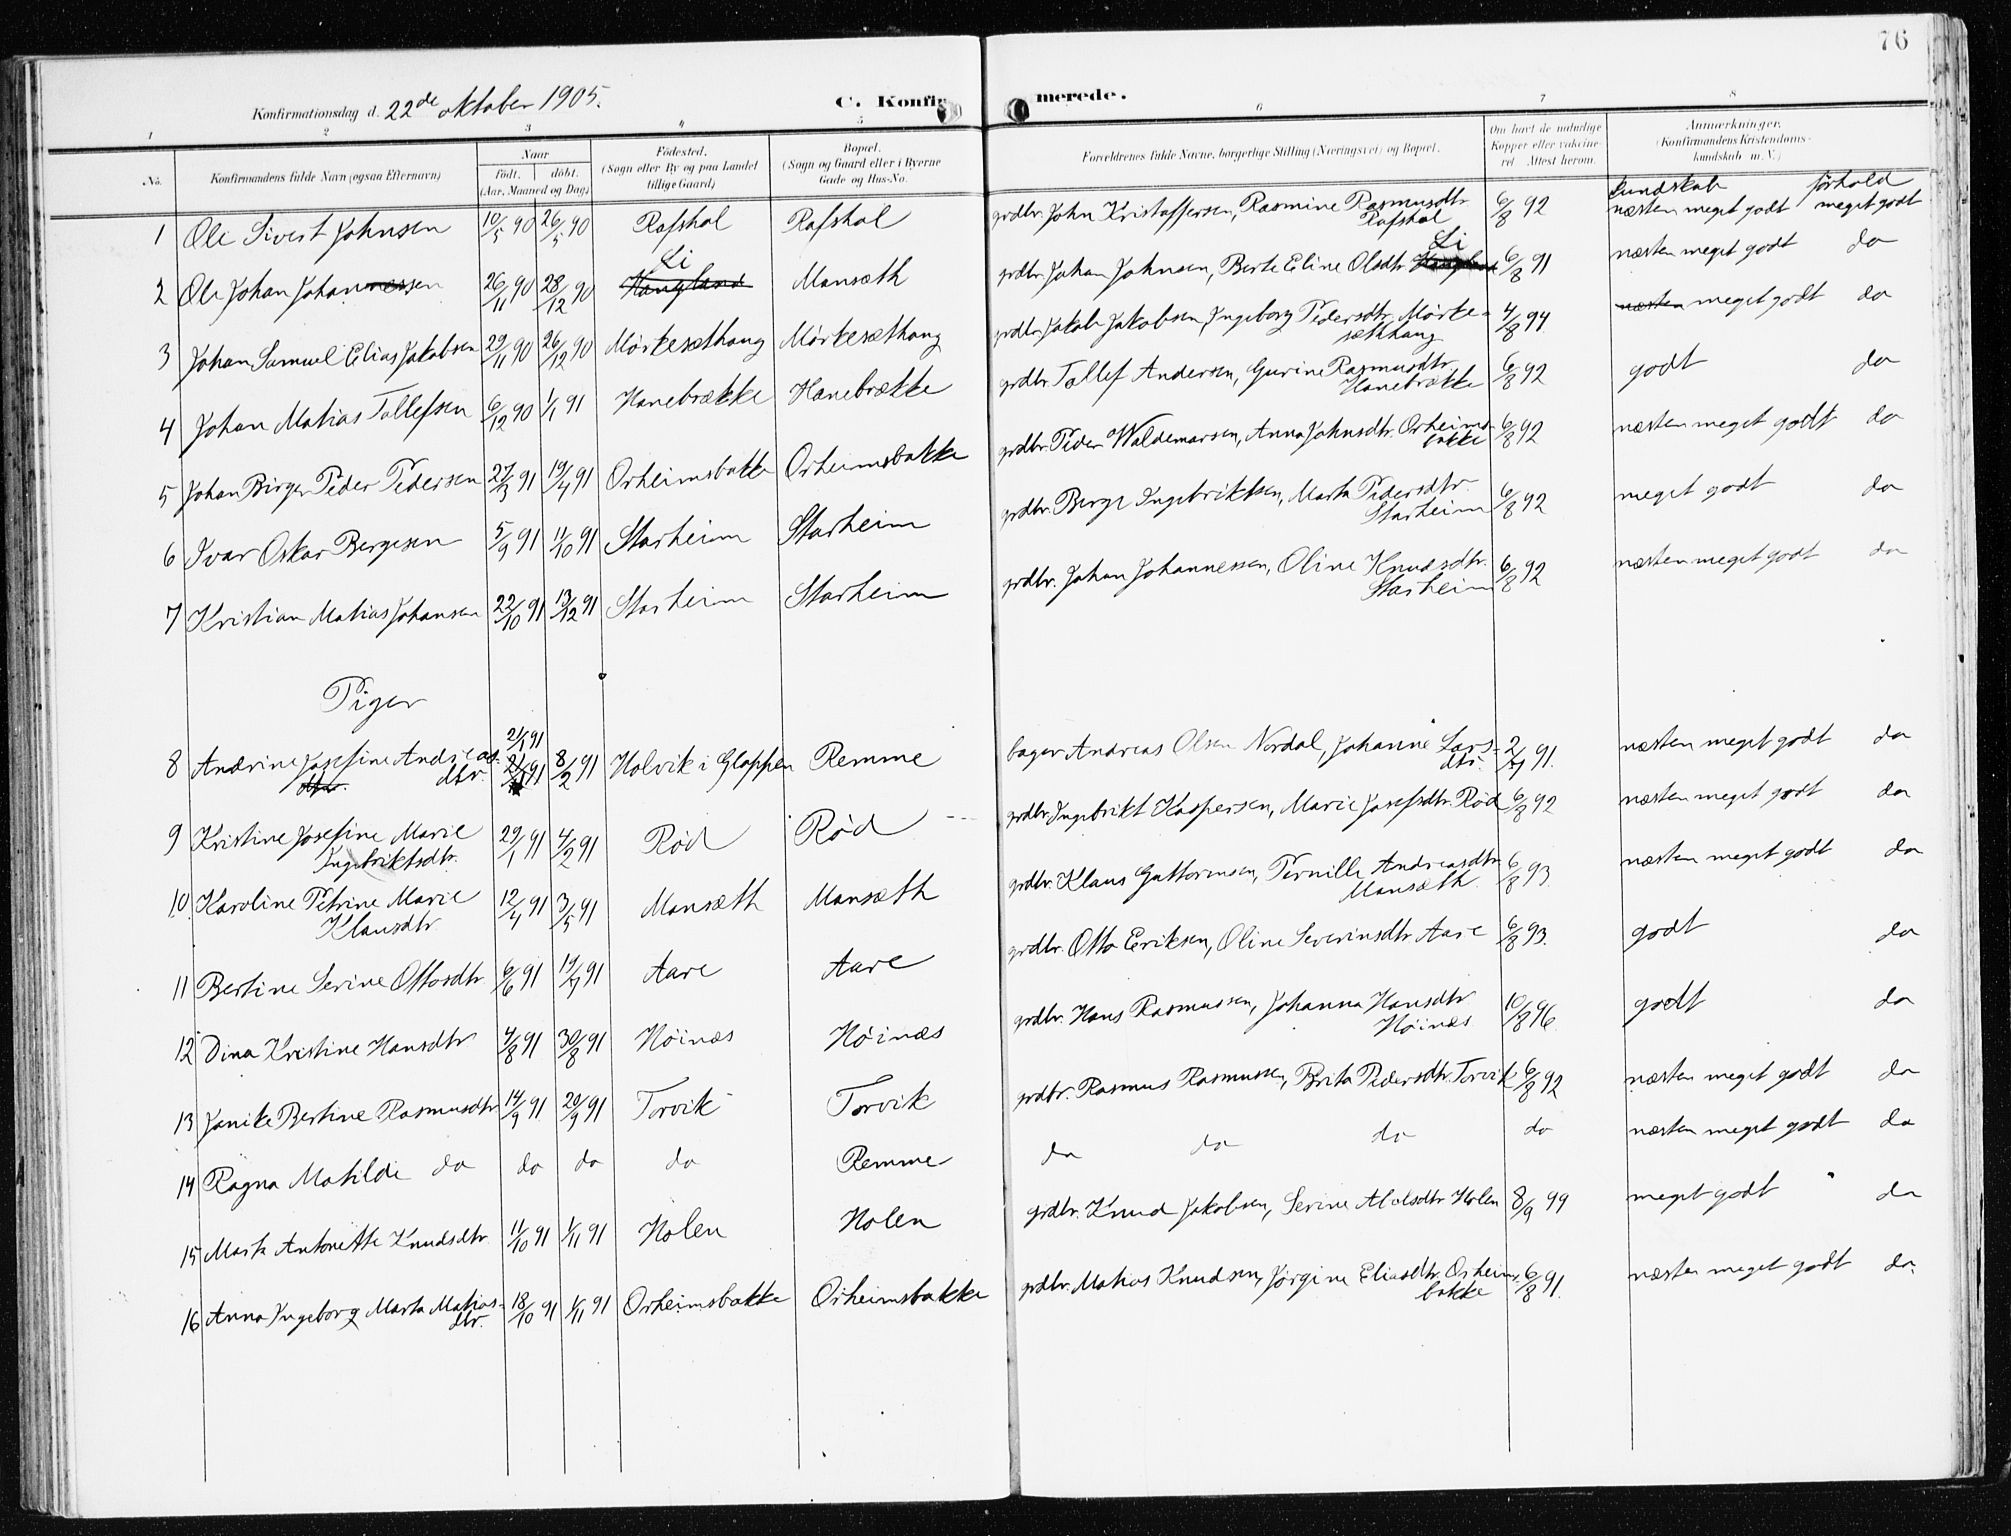 76
Konfirmationsdag d. 22de oktober 1905. C. Konfir merede.
1 2 3 4 5 6 7 8
No. Konfirmandens fulde Navn (ogsaa Efternavn) Naar født. døbt. (Aar, Maaned og Dag) Fødested. (Sogn eller By og paa Landet tillige Gaard) Bopæl. (Sogn og Gaard eller i Byerne Gade og Hus-No. Forældrenes fulde Navne, borgerlige Stilling (Næringsvei) og Bopæl. Om havt de naturlige Kopper eller vaksineret. Attest herom. Anmærkninger. (Konfirmandens Kristendomskundskab m. V.)
kundskab forhold
1 Ole Sivert Johnsen 10/5 90 26/5 90 Rafshol Rafshol grdbr. John Kristoffersen, Rasmine Rasmusdtr. Rafshol 6/8 92 næsten meget godt meget godt
2 Ole Johan Johannessen 26/11 90 28/12 90 Li Haugland Mansæth grdbr. Johan Johnsen, Berte Eline Olsdtr. Li Haugland 6/8 91 næsten meget godt do
3 Johan Samuel Elias Jakobsen 29/11 90 26/12 90 Mørkesæthaug Mørkesæthaug grdbr. Jakob Jakobsen, Ingeborg Pedersdtr. Mørkesæthhaug 4/8 94 næsten meget godt do
4 Johan Matias Tollefsen 6/12 90 1/1 91 Hanebrække Hanebrække grdbr. Tollef Andersen, Gurine Rasmusdtr. Hanebrække 6/8 92 godt do
5 Johan Birger Peder Pedersen 27/3 91 19/4 91 Orheimsbakke Orheimsbakke grdbr. Peder Waldemarsen, Anna Johnsdtr. Orheimsbakke 6/8 92 næsten meget godt do
6 Ivar Oskar Bergesen 5/9 91 11/10 91 Starheim Starheim grdbr. Berge Ingebriktsen, Marta Pedersdtr. Starheim 6/8 92 meget godt do
7 Kristian Matias Johansen 22/10 91 13/12 91 Starheim Starheim grdbr. Johan Johannessen, Oline Knudsdtr. Starheim 6/8 92 næsten meget godt do
Piger
8 Andrine Josefine Andreasdtr. dtr. 21/1 91 8/2 91 Holvik i Gloppen Remme bager Andreas Olsen Nordal, Johanne Larsdtr. 2/7 91. næsten meget godt do
9 Kristine Josefine Marie Ingebriktsdtr. 29/1 91 4/2 91 Rød Rød grdbr. Ingebrikt Kaspersen, Marie Josefsdtr. Rød 6/8 92 næsten meget godt do
10. Karoline Petrine Marie Klausdtr. 12/4 91 3/5 91 Mansæth Mansæth grdbr. Klaus Guttormsen, Pernille Andreasdtr. Mansæth 6/8 93 næsten meget godt do
11 Bertine Serine Ottosdtr 6/6 91 19/7 91 Aare Aare grdbr. Otto Eriksen, Oline Severinsdtr. Aare 6/8 93. godt do
12 Dina Kristine Hansdtr 4/8 91 30/8 91 Høinæs Høinæs grdbr. Hans Rasmussen, Johanna Hansdtr Høinæs 10/8 96. godt do
13 Janike Bertine Rasmusdtr 14/9 91 20/9 91 Torvik Torvik grdbr. Rasmus Rasmussen, Brita Pedersdtr. Torvik 6/8 92 næsten meget godt do
14 Ragna Matilde do do do do Remme do do do do næsten meget godt do
15 Marta Antonette Knudsdtr 11/10 91 1/11 91 Holen Holen grdbr. Knud Jakobsen, Serine Abelsdtr Holen 8/9 99 meget godt do
16 Anna Ingeborg Marta Matiasdtr. 18/10 91 1/11 91 Orheimsbakke Orheimsbakke grdbr. Matias Knudsen, Jørgine Eliasdtr. Orheimsbakke 6/8 91. næsten meget godt do